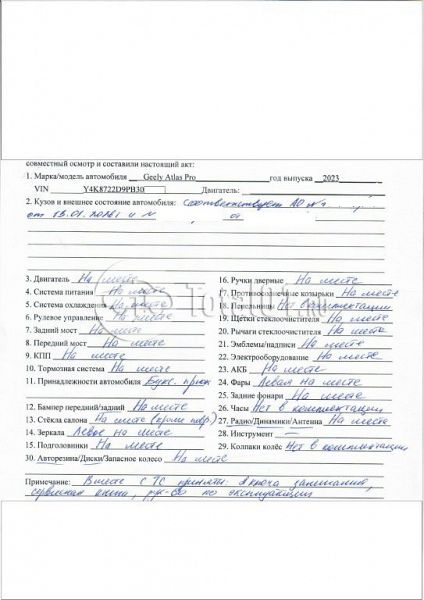 совместный осмотр и составили настоящий акт:
1. Марка/модель автомобиля Geely Atlas Pro год выпуска 2023
VIN Y4K8722D9PB30 Двигатель:
2. Кузов и внешнее состояние автомобиля: Соответствует АО №1
от 13.01. и от
3. Двигатель На месте
4. Система питания На месте
5. Система охлаждения На месте
6. Рулевое управление На месте
7. Задний мост На месте
8. Передний мост На месте
9. КПП На месте
10. Тормозная система На месте
11. Принадлежности автомобиля Букс. крюк
12. Бампер передний/задний На месте
13. Стёкла салона На месте (кроме)
14. Зеркала Левое на месте
15. Подголовники На месте
30. Авторезина/Диски/Запасное колесо На месте
16. Ручки дверные На месте
17. Противосолнечные козырьки На месте
18. Пепельницы Нет в комплектации
19. Щётки стеклоочистителя На месте
20. Рычаги стеклоочистителя На месте
21. Эмблемы/надписи На месте
22. Электрооборудование На месте
23. АКБ На месте
24. Фары Левая на месте
25. Задние фонари На месте
26. Часы Нет в комплектации
27. Радио/Динамики/Антенна На месте
28. Инструмент
29. Колпаки колёс Нет в комплектации
Примечание: Вместе с ТС приняты: 2 ключа зажигания,
сервисная книга, рук-во по эксплуатации
Total01.ru